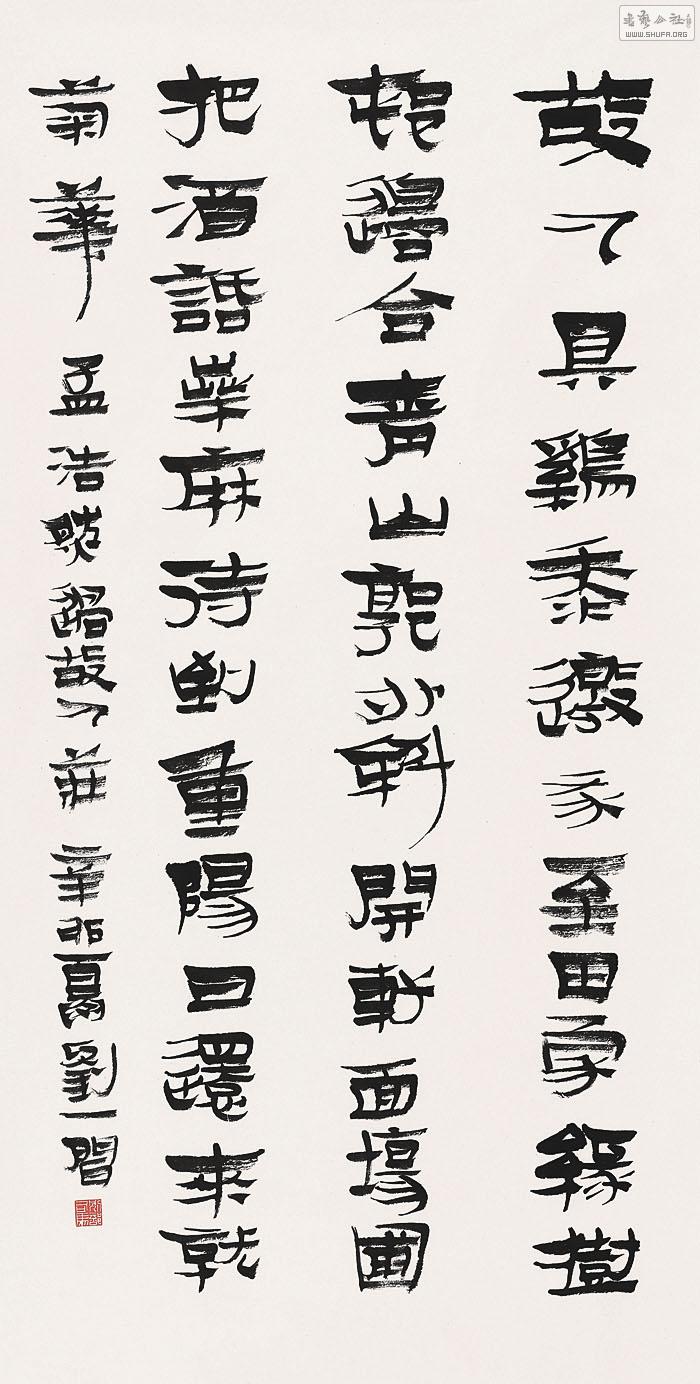 書藝公社
WWW.SHUFA.ORG
故人具鷄黍邀我至田家綠樹
邨邊合青山郭外斜開軒面場圃
把酒話桒麻待到重陽日還來就
菊華 孟浩然過故人莊 辛卯夏劉一聞